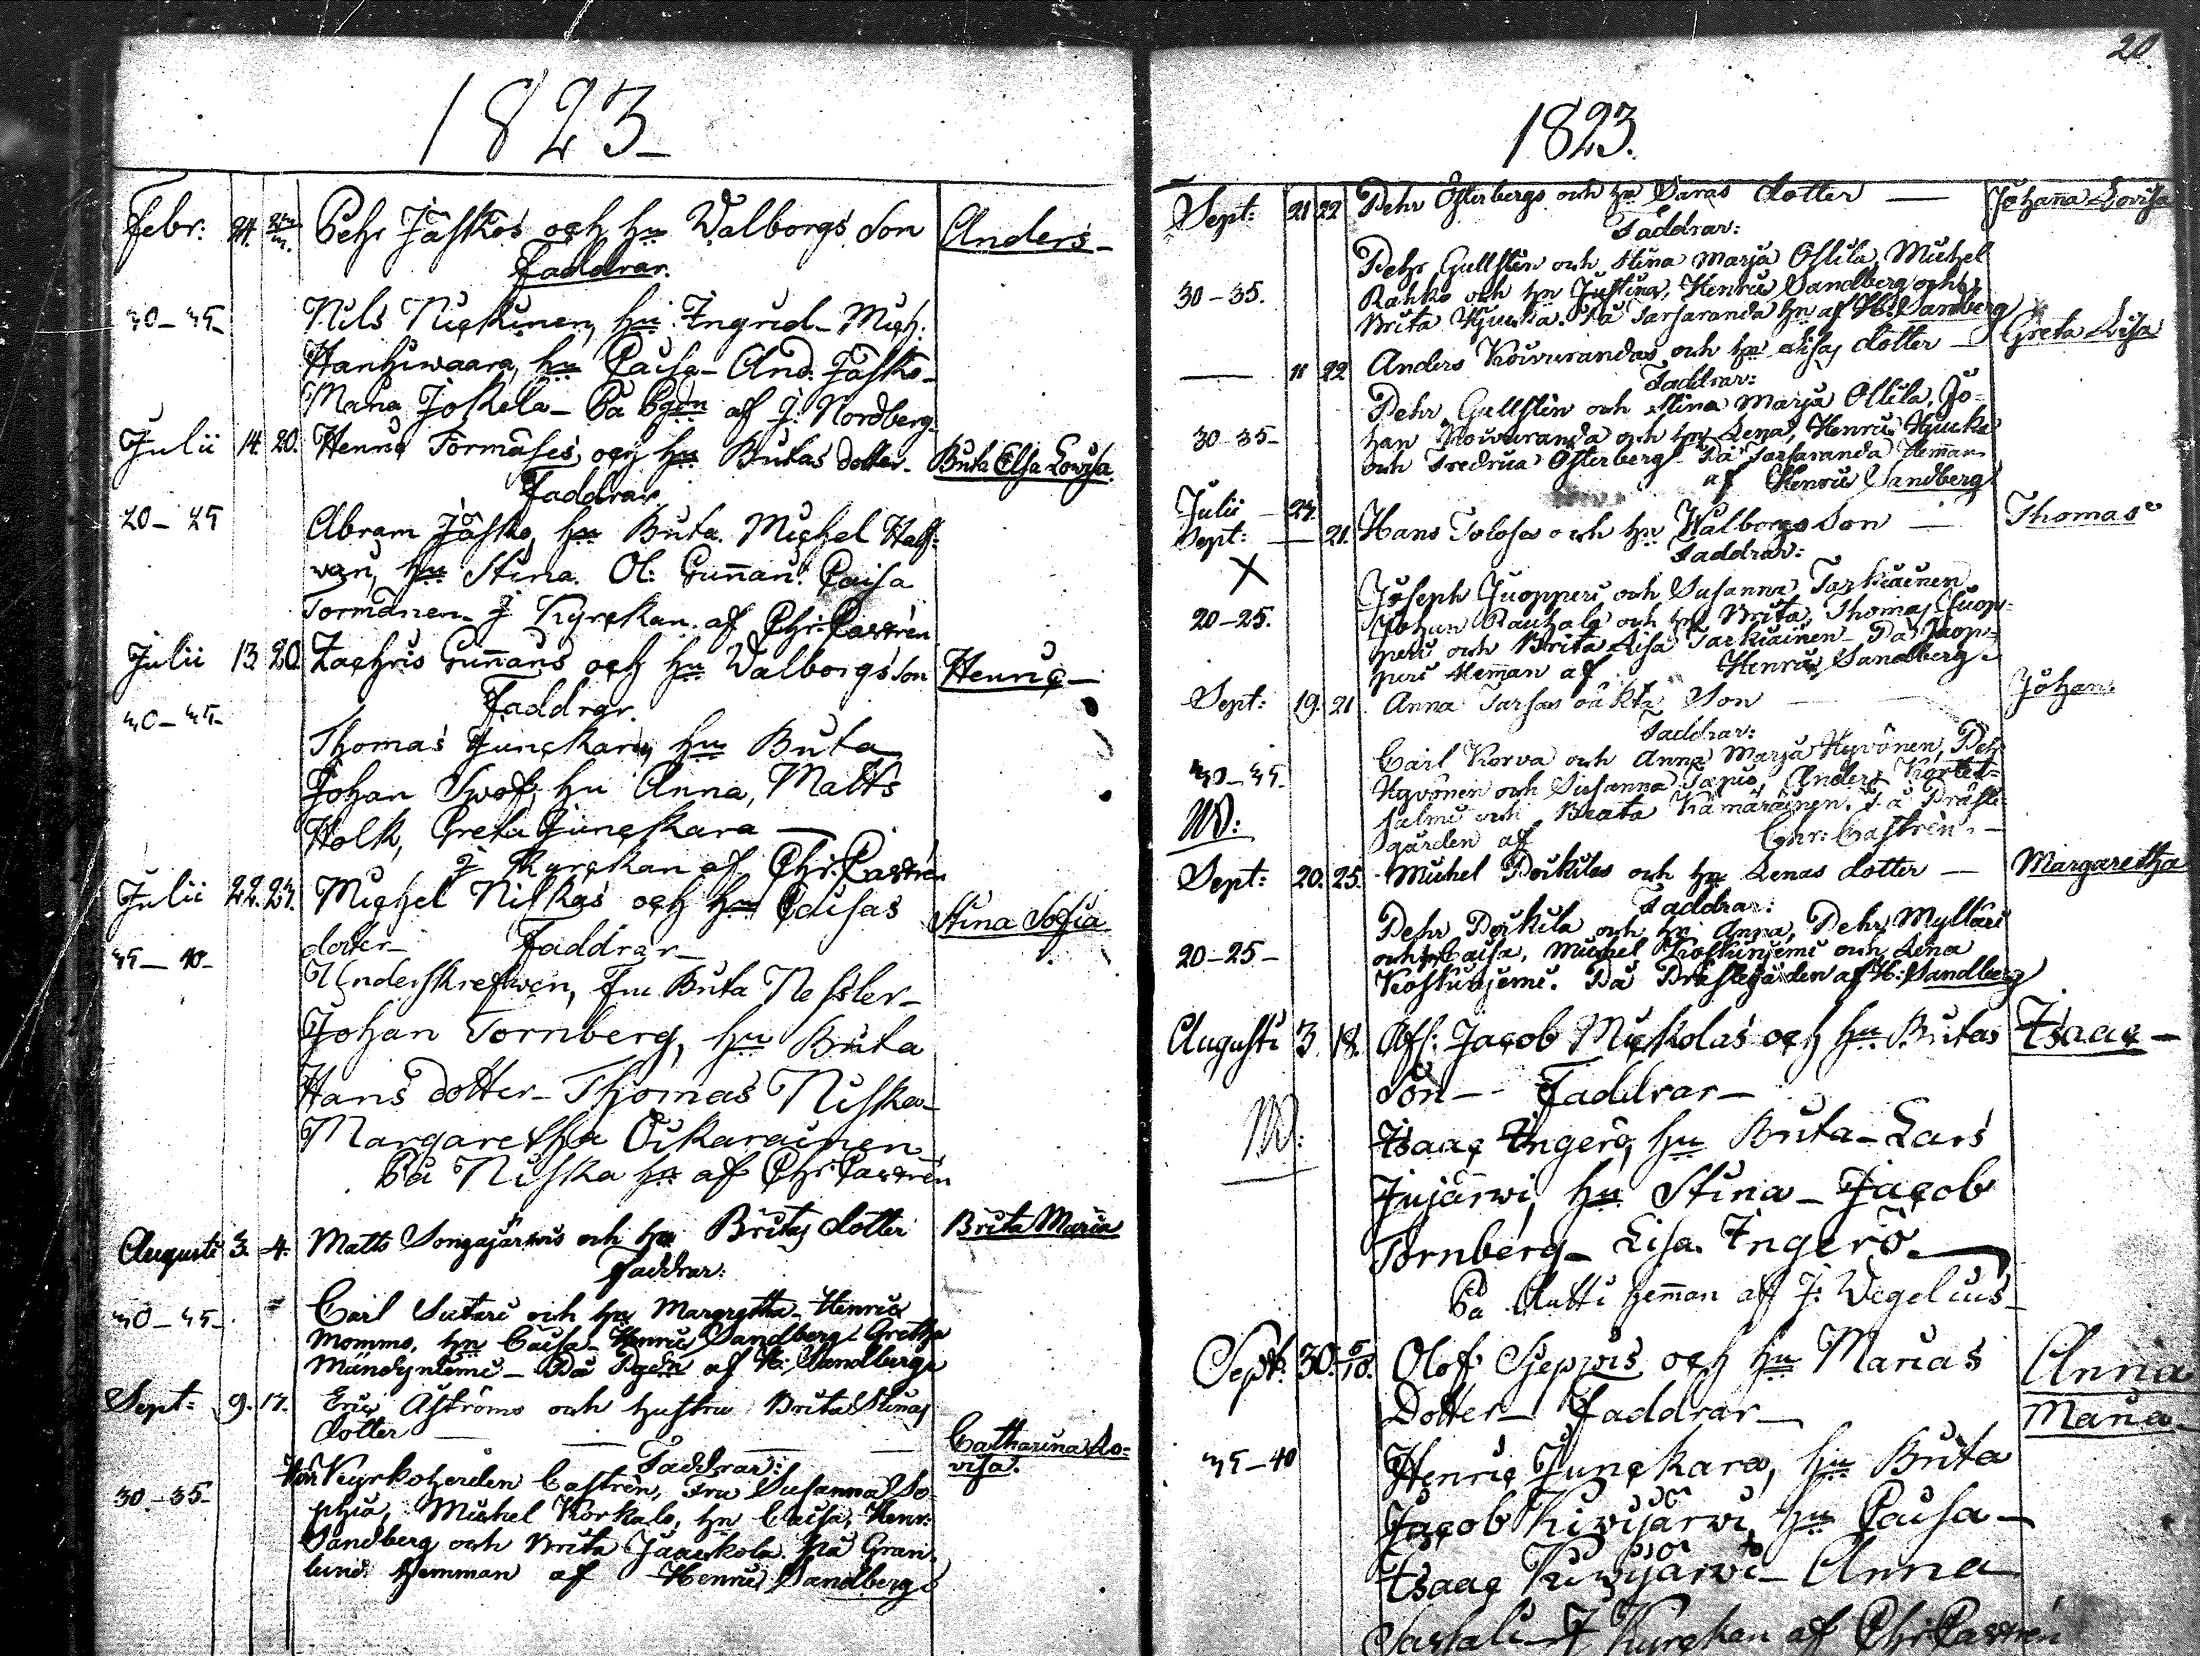 1823
Febr: 24. Pehr Jäskos och hu Walborgs Son Anders
Faddrar.
30-35 Nils Niskinen, hu: Ingrid - Mich:
Hanhiwaara, hu Caisa - And. Jäsko -
Maria Jokela - På Pgdn af J. Nordberg
Julii 14 20. Henric Törmäses och hu Britas dotter - Brita Elsa Lovisa
Faddrar
20-25 Abram Jäsko, hu Brita. Michel
hu Stina. Ol: Gunnari Caisa
Tormänen - J Kyrckan af Chr: Castrén
Julii 13 20. Zachris Gunnaris och hu Walborgs son Henric -
Faddrar.
30-35 Thomas Junckara, hu Brita
Johan hu Anna, Matts
Holk, Greta Junckara -
J Kyrckan af Chr: Castrén
Julii 22. 23. Michel Niskas och hu Caisas Stina Sofia
dotter - Faddrar -
35-40 Underskrefwen, Fru Brita Nessler -
Johan Tornberg, hu Brita
Hans dotter - Thomas Niska -
Margaretha Oikarainen -
På Niska hn af Chr: Castrén
Augusti 3. 4. Matts Songajärwis och hu Britas dotter Brita Maria
Faddrar:
30-35 Carl Sutari och hu Margretha - Henric
Mommo, hu Caisa - Henric Sandberg Gretha
På Pgdn af H: Sandberg
Sept: 9. 17. Eric Åströms och hustru Brita Stinas
dotter — — — Catharina Lo-
Faddrar: visa.
Herr Kyrkoherden Castrén, Fru Susanna So-
30-35 phia, Michel Korkalo, hu Caisa, Henr:
Sandberg och Brita Jaakkola. På Gran-
lund hemman af Henric Sandberg
20
1823.
Sept: 21 22 Pehr Österbergs och hu Saras dotter — Johanna Lovisa
Faddrar:
Pehr Gullsten och Stina Marja Ollila, Michel
30-35. Rahko och hu Justina, Henric Sandberg och
Brita Hjucka. På Tarfaranda hn af H: Sandberg
— 11 22 Anders Koivurandas och hu Lisas dotter — Greta Lisa
Faddrar:
Pehr Gullsten och Stina Marja Ollila, Jo-
30-35- han Koivuranda och hu Lena, Henric Hjucka
och Fredrica Österberg - På Tarfaranda Hemman
af Henric Sandberg
Julii - 24.
Sept: — 21. Hans Toloses och hu Walborgs Son — Thomas
X Faddrar:
Joseph Juopperi och Susanna Tarkiainen
20-25. Johan Rauhala och hu Brita, Thomas Juop-
peri och Brita Lisa Tarkiainen - På Juop-
peri Hemman af Henric Sandberg
Sept: 19. 21 Anna oäkta Son — Johan.
Faddrar:
Carl Korva och Anna Marja Hyvönen, Pehr
30-35 Hyvönen och Susanna Anders
salmi och Beata Hämäräinen. På Präste-
gården af Chr: Castrén. -
Sept: 20. 25. Michel Poikilas och hu Lenas dotter — Margaretha
Faddrar:
Pehr Poikila och hu Anna, Pehr Myllari
20-25 - och hu Caisa, Michel Koskinjemi och Lena
Koskinjemi. På Prästegården af H: Sandberg
Augusti 3 18. Afl: Jacob Muckolas och hu Britas Isaac -
Son - Faddrar -
Isaac Ingerö, hu Brita - Lars
Jnjärwi, hu Stina - Jacob
Tornberg - Lisa Ingerö. -
På Autti hemman af J: Wegelius -
Sept. 30. 5/10. Olof och hu Marias Anna
Dotter - Faddrar - Maria -
35-40 Henric Junckara, hu Brita
Jacob Kiwijärwi, hu Caisa -
Isaac Kiwijärwi - Anna
J Kyrckan af Chr: Castrén